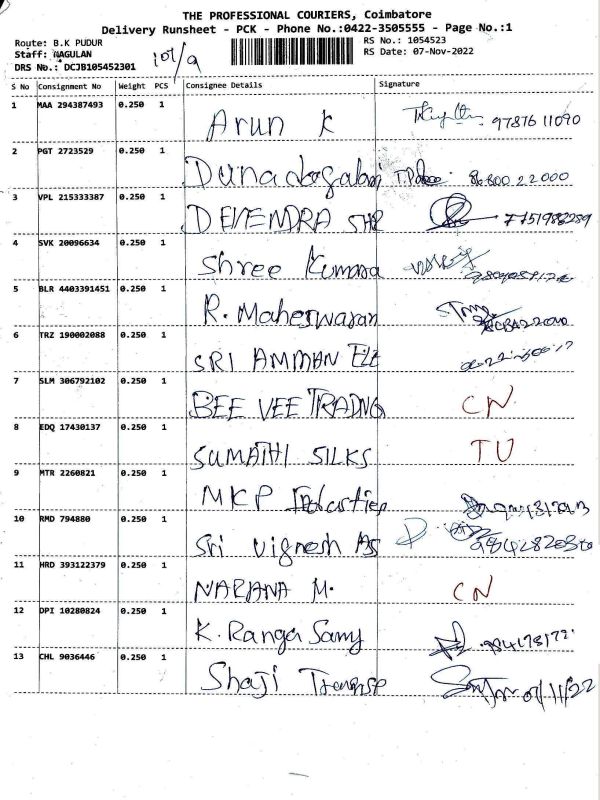 THE PROFESSIONAL COURIERS, Coimbatore
Delivery Runsheet - PCK - Phone No.:0422-3505555 - Page No.:1
Route: B.K PUDUR RS No.: 1054523
Staff: NAGULAN RS Date: 07-Nov-2022
DRS No.: DCJB105452301
S No Consignment No Weight PCS Consignee Details Signature
1 MAA 294387493 0.250 1 Arun K 97876 11090
2 PGT 2723529 0.250 1
3 VPL 215333387 0.250 1 DEVENDRA SHR
4 SVK 20096634 0.250 1 Shree Kumara
5 BLR 4403391451 0.250 1 R. Maheswaran
6 TRZ 190002088 0.250 1 SRI AMMAN ELE
7 SLM 306792102 0.250 1 BEE VEE TRADNG CN
8 EDQ 17430137 0.250 1 SUMATHI SILKS TU
9 MTR 2260821 0.250 1 MKP
10 RMD 794880 0.250 1 Sri Vignesh AS
11 HRD 393122379 0.250 1 NARANA M. CN
12 DPI 10280824 0.250 1 K. Ranga Samy
13 CHL 9036446 0.250 1 Shaji